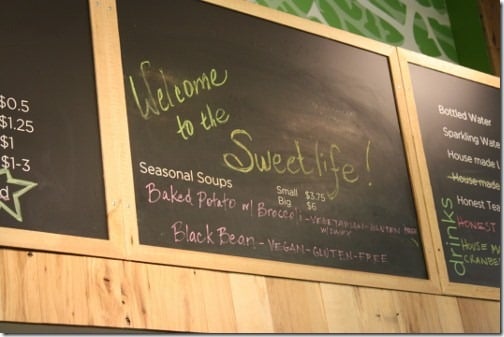 $0.5
$1.25
$1
$1-3
Welcome
to the
Sweetlife!
Seasonal Soups
Small $3.75
Big $6
Baked Potato w/ Broccoli - VEGETARIAN - GLUTEN FREE
W/ DAIRY
Black Bean - VEGAN - GLUTEN - FREE
drinks
Bottled Water
Sparkling Wate
House made
House made
Honest Tea
HONEST
HOUSE M
CRANBE